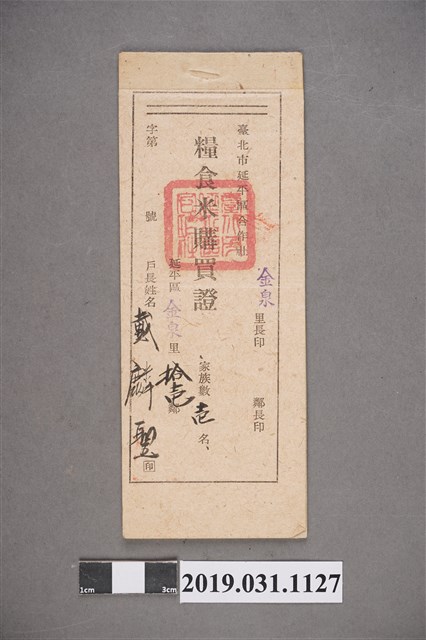 臺北市延平區合作社
金泉 里長印
鄰長印
糧食米購買證
家族數 壱 名、
延平區 金泉 里 拾壱 鄰
字第 號
戶長姓名 戴麟 印
1cm 3cm
2019.031.1127